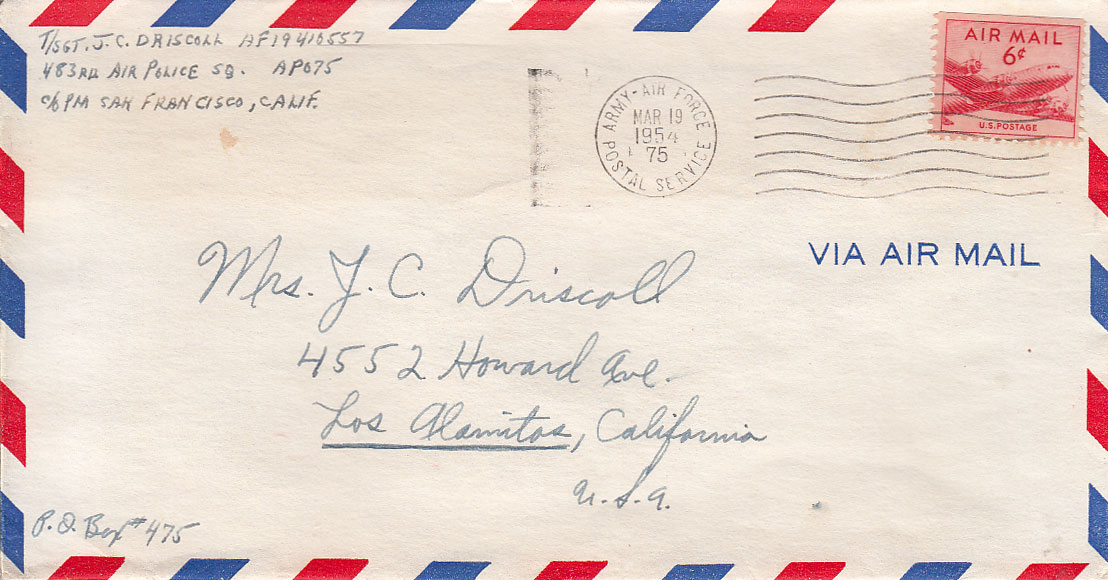 T/SGT. J. C. DRISCOLL AF19410557
483RD AIR POLICE SQ. APO75
c/o PM SAN FRANCISCO, CALIF.
ARMY-AIR FORCE
MAR 19
1954
75
POSTAL SERVICE
AIR MAIL
6¢
U.S. POSTAGE
VIA AIR MAIL
Mrs. J. C. Driscoll
4552 Howard Ave.
Los Alamitos, California
U.S.A.
P.O. Box # 475